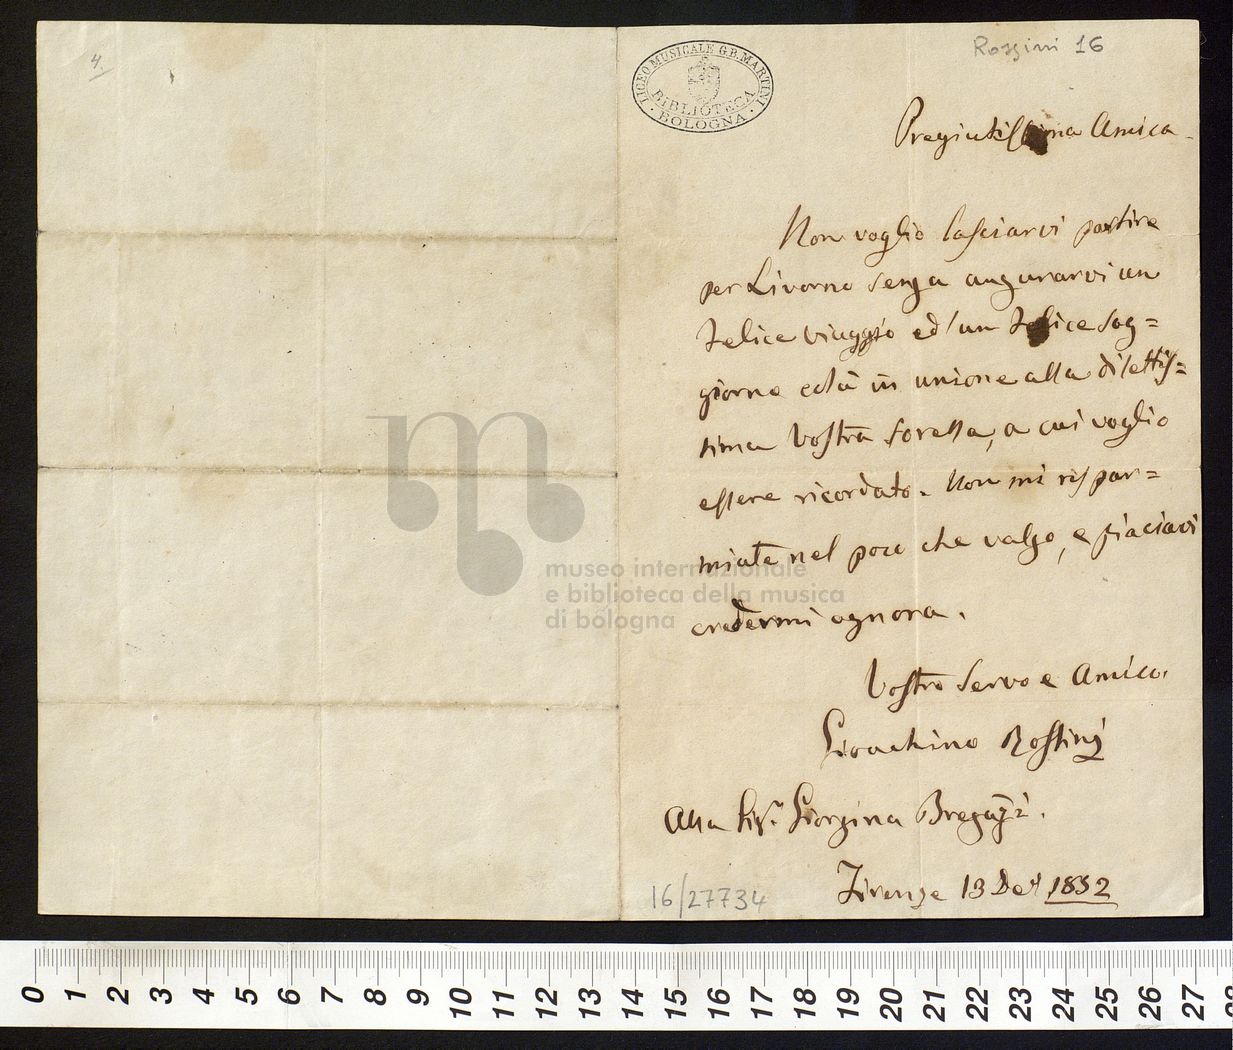 4.
LICEO MUSICALE G.B. MARTINI
BIBLIOTECA
BOLOGNA
Rossini 16
Pregiatissima Amica
Non voglio lasciarvi partire
per Livorno senza augurarvi un
felice viaggio ed un felice sog=
giorno colà in unione alla dilettis=
sima vostra sorella, a cui voglio
essere ricordato. Non mi rispar=
miate nel poco che valgo, e piaciavi
credermi ognora.
Vostro servo e Amico.
Gioachino Rossini
Alla Sig.ra Giorgina Bregazzi.
Firenze 13 Der 1852
16/27734
museo internazionale
e biblioteca della musica
di bologna
0 1 2 3 4 5 6 7 8 9 10 11 12 13 14 15 16 17 18 19 20 21 22 23 24 25 26 27 28